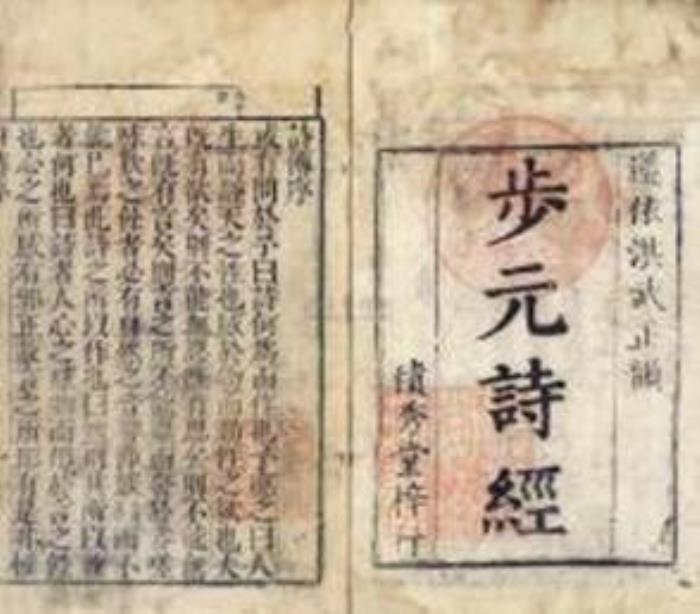 遵依洪武正韻
步元詩經
積秀堂梓行
詩傳序
或有問於予曰詩何爲而作也予應之曰人
生而靜天之性也感於物而動性之欲也夫
既有欲矣則不能無思既有思矣則不能無
言既有言矣則言之所不能盡而發於咨嗟
咏歎之餘者必有自然之音響節族而不
能已焉此詩之所以作也曰然則其所以教
者何也曰詩者人心之感物而形於言之餘
也心之所感有邪正故言之所形有是非惟